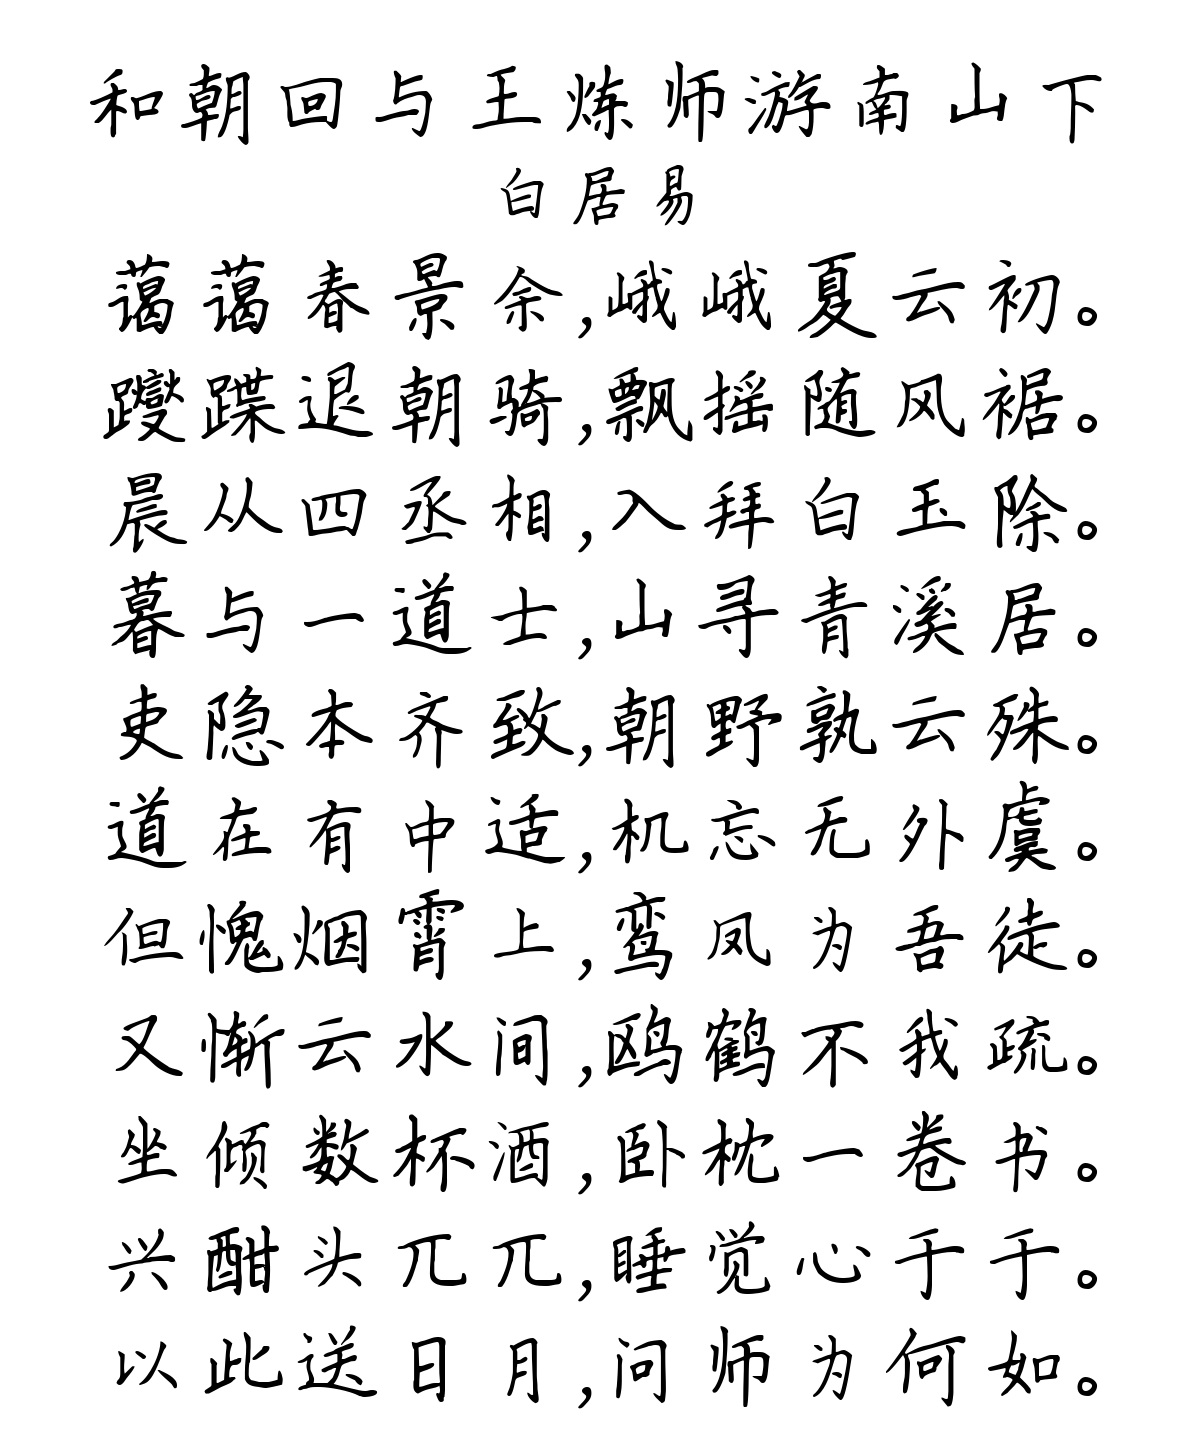 和朝回与王炼师游南山下
白居易
蔼蔼春景余,峨峨夏云初。
躞蹀退朝骑,飘摇随风裾。
晨从四丞相,入拜白玉除。
暮与一道士,山寻青溪居。
吏隐本齐致,朝野孰云殊。
道在有中适,机忘无外虞。
但愧烟霄上,鸾凤为吾徒。
又惭云水间,鸥鹤不我疏。
坐倾数杯酒,卧枕一卷书。
兴酣头兀兀,睡觉心于于。
以此送日月,问师为何如。